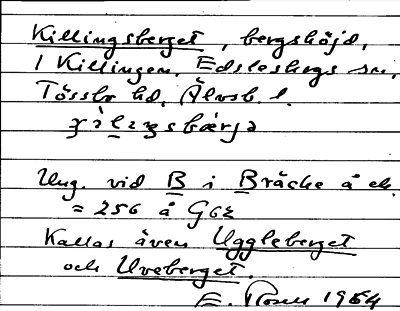 Killingsberget, bergshöjd,
i Killingen, Edsleskogs sn,
Tössbo hd, Älvsb. l.
Ung. vid B i Bräcke å ek.
= 256 å G62
Kallas även Uggleberget
och Uveberget.
E. Rosell 1964